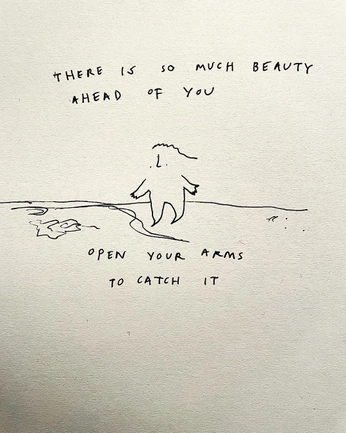 THERE IS SO MUCH BEAUTY
AHEAD OF YOU
OPEN YOUR ARMS
TO CATCH IT